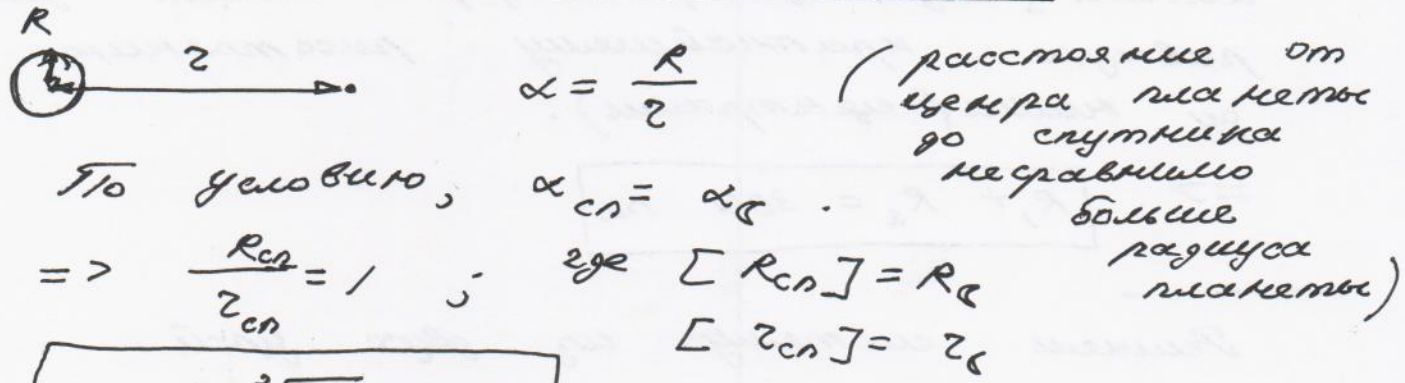 R
r
α = R / r
( расстояние от
центра планеты
до спутника
несравнимо
больше
радиуса
планеты )
По условию, α сп = α ☾ .
=> R сп / r сп = 1 ; где [ R сп ] = R ☾
[ r сп ] = r ☾